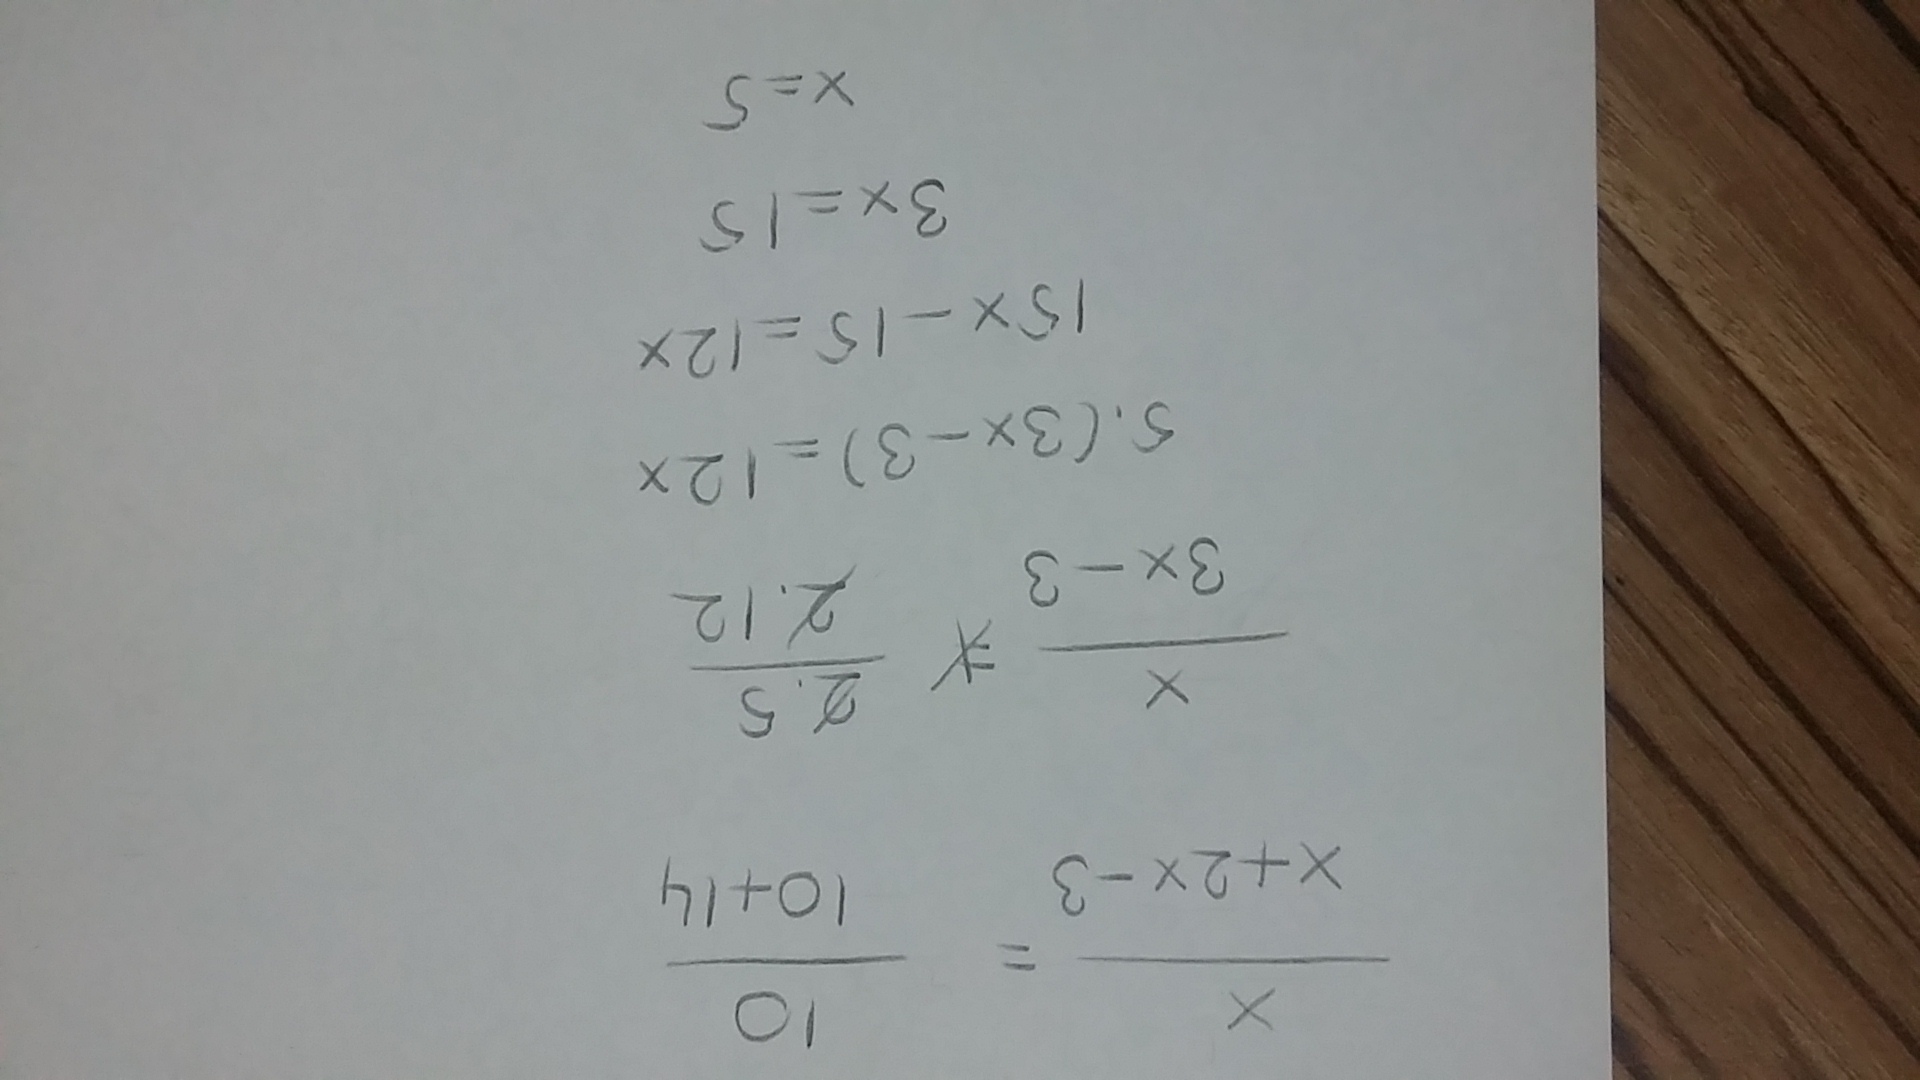 x/(x+2x-3) = 10/(10+14)
x/(3x-3) = 2.5/2.12
5.(3x-3)=12x
15x-15=12x
3x=15
x=5